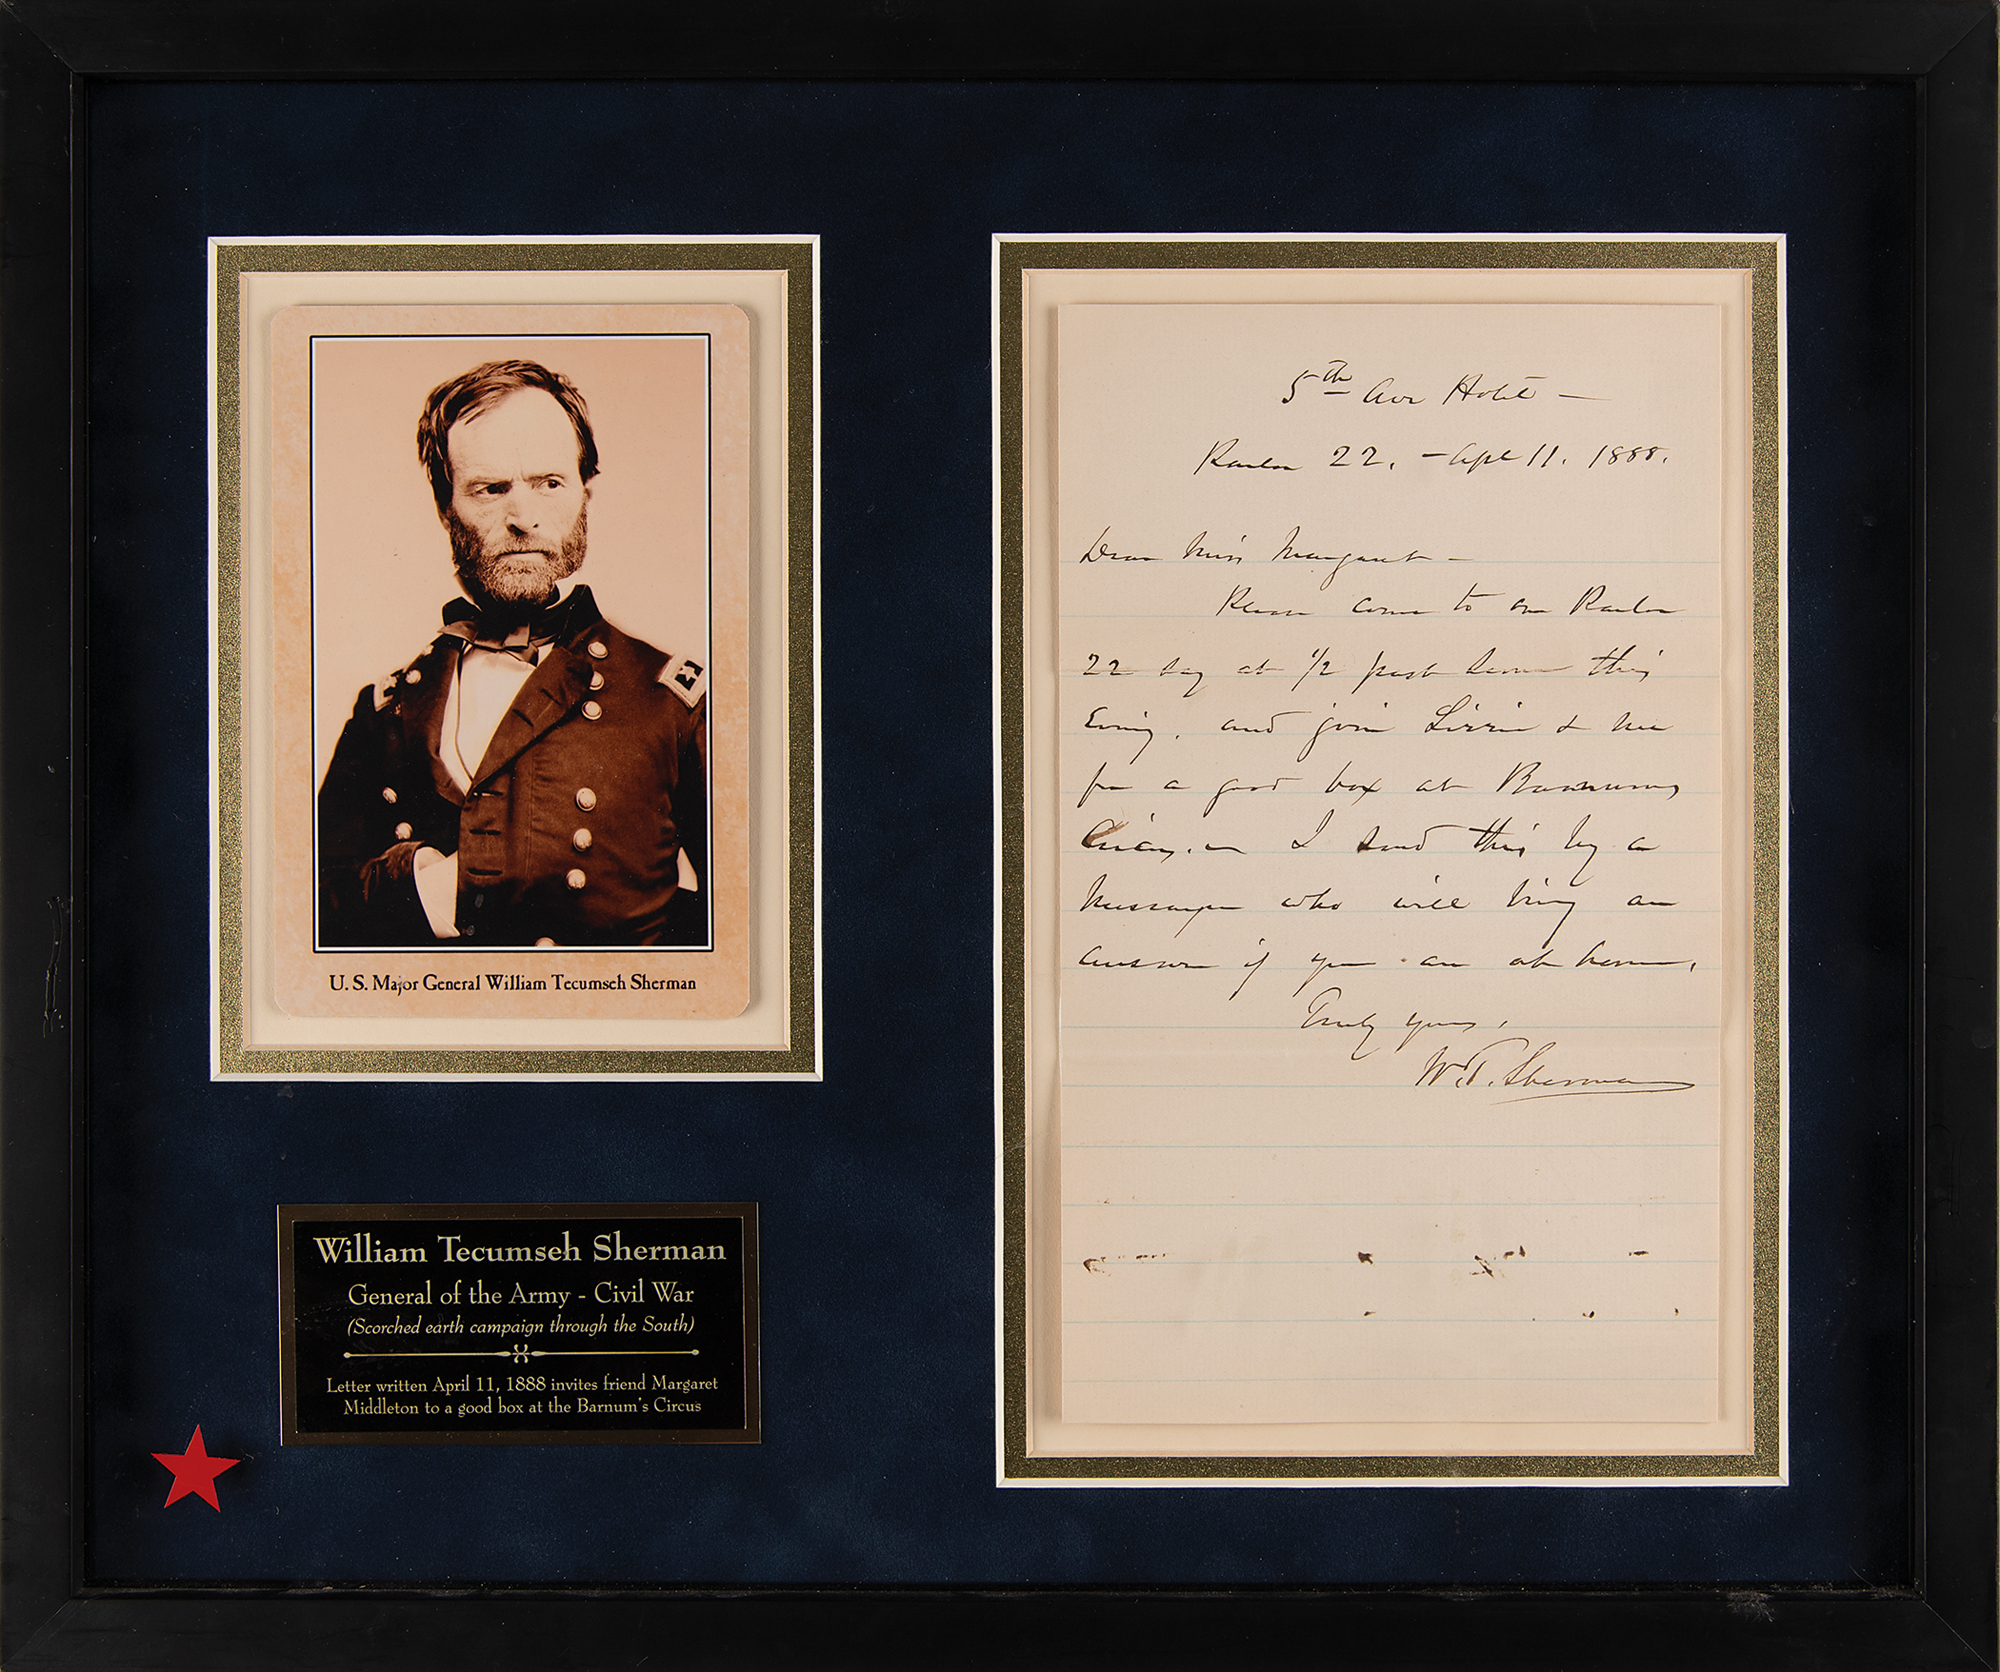 U. S. Major General William Tecumseh Sherman
William Tecumseh Sherman
General of the Army - Civil War
(Scorched earth campaign through the South)
Letter written April 11, 1888 invites friend Margaret
Middleton to a good box at the Barnum's Circus
5th Ave Hotel —
Parlor 22. – Apl 11. 1888.
Dear Miss Margaret –
Please come to our Parlor
22 say at 1/2 past seven this
Evening, and join Lizzie & me
for a good box at Barnums
Circus. I send this by a
messenger who will bring an
answer if you are at home.
Truly yours,
W. T. Sherman